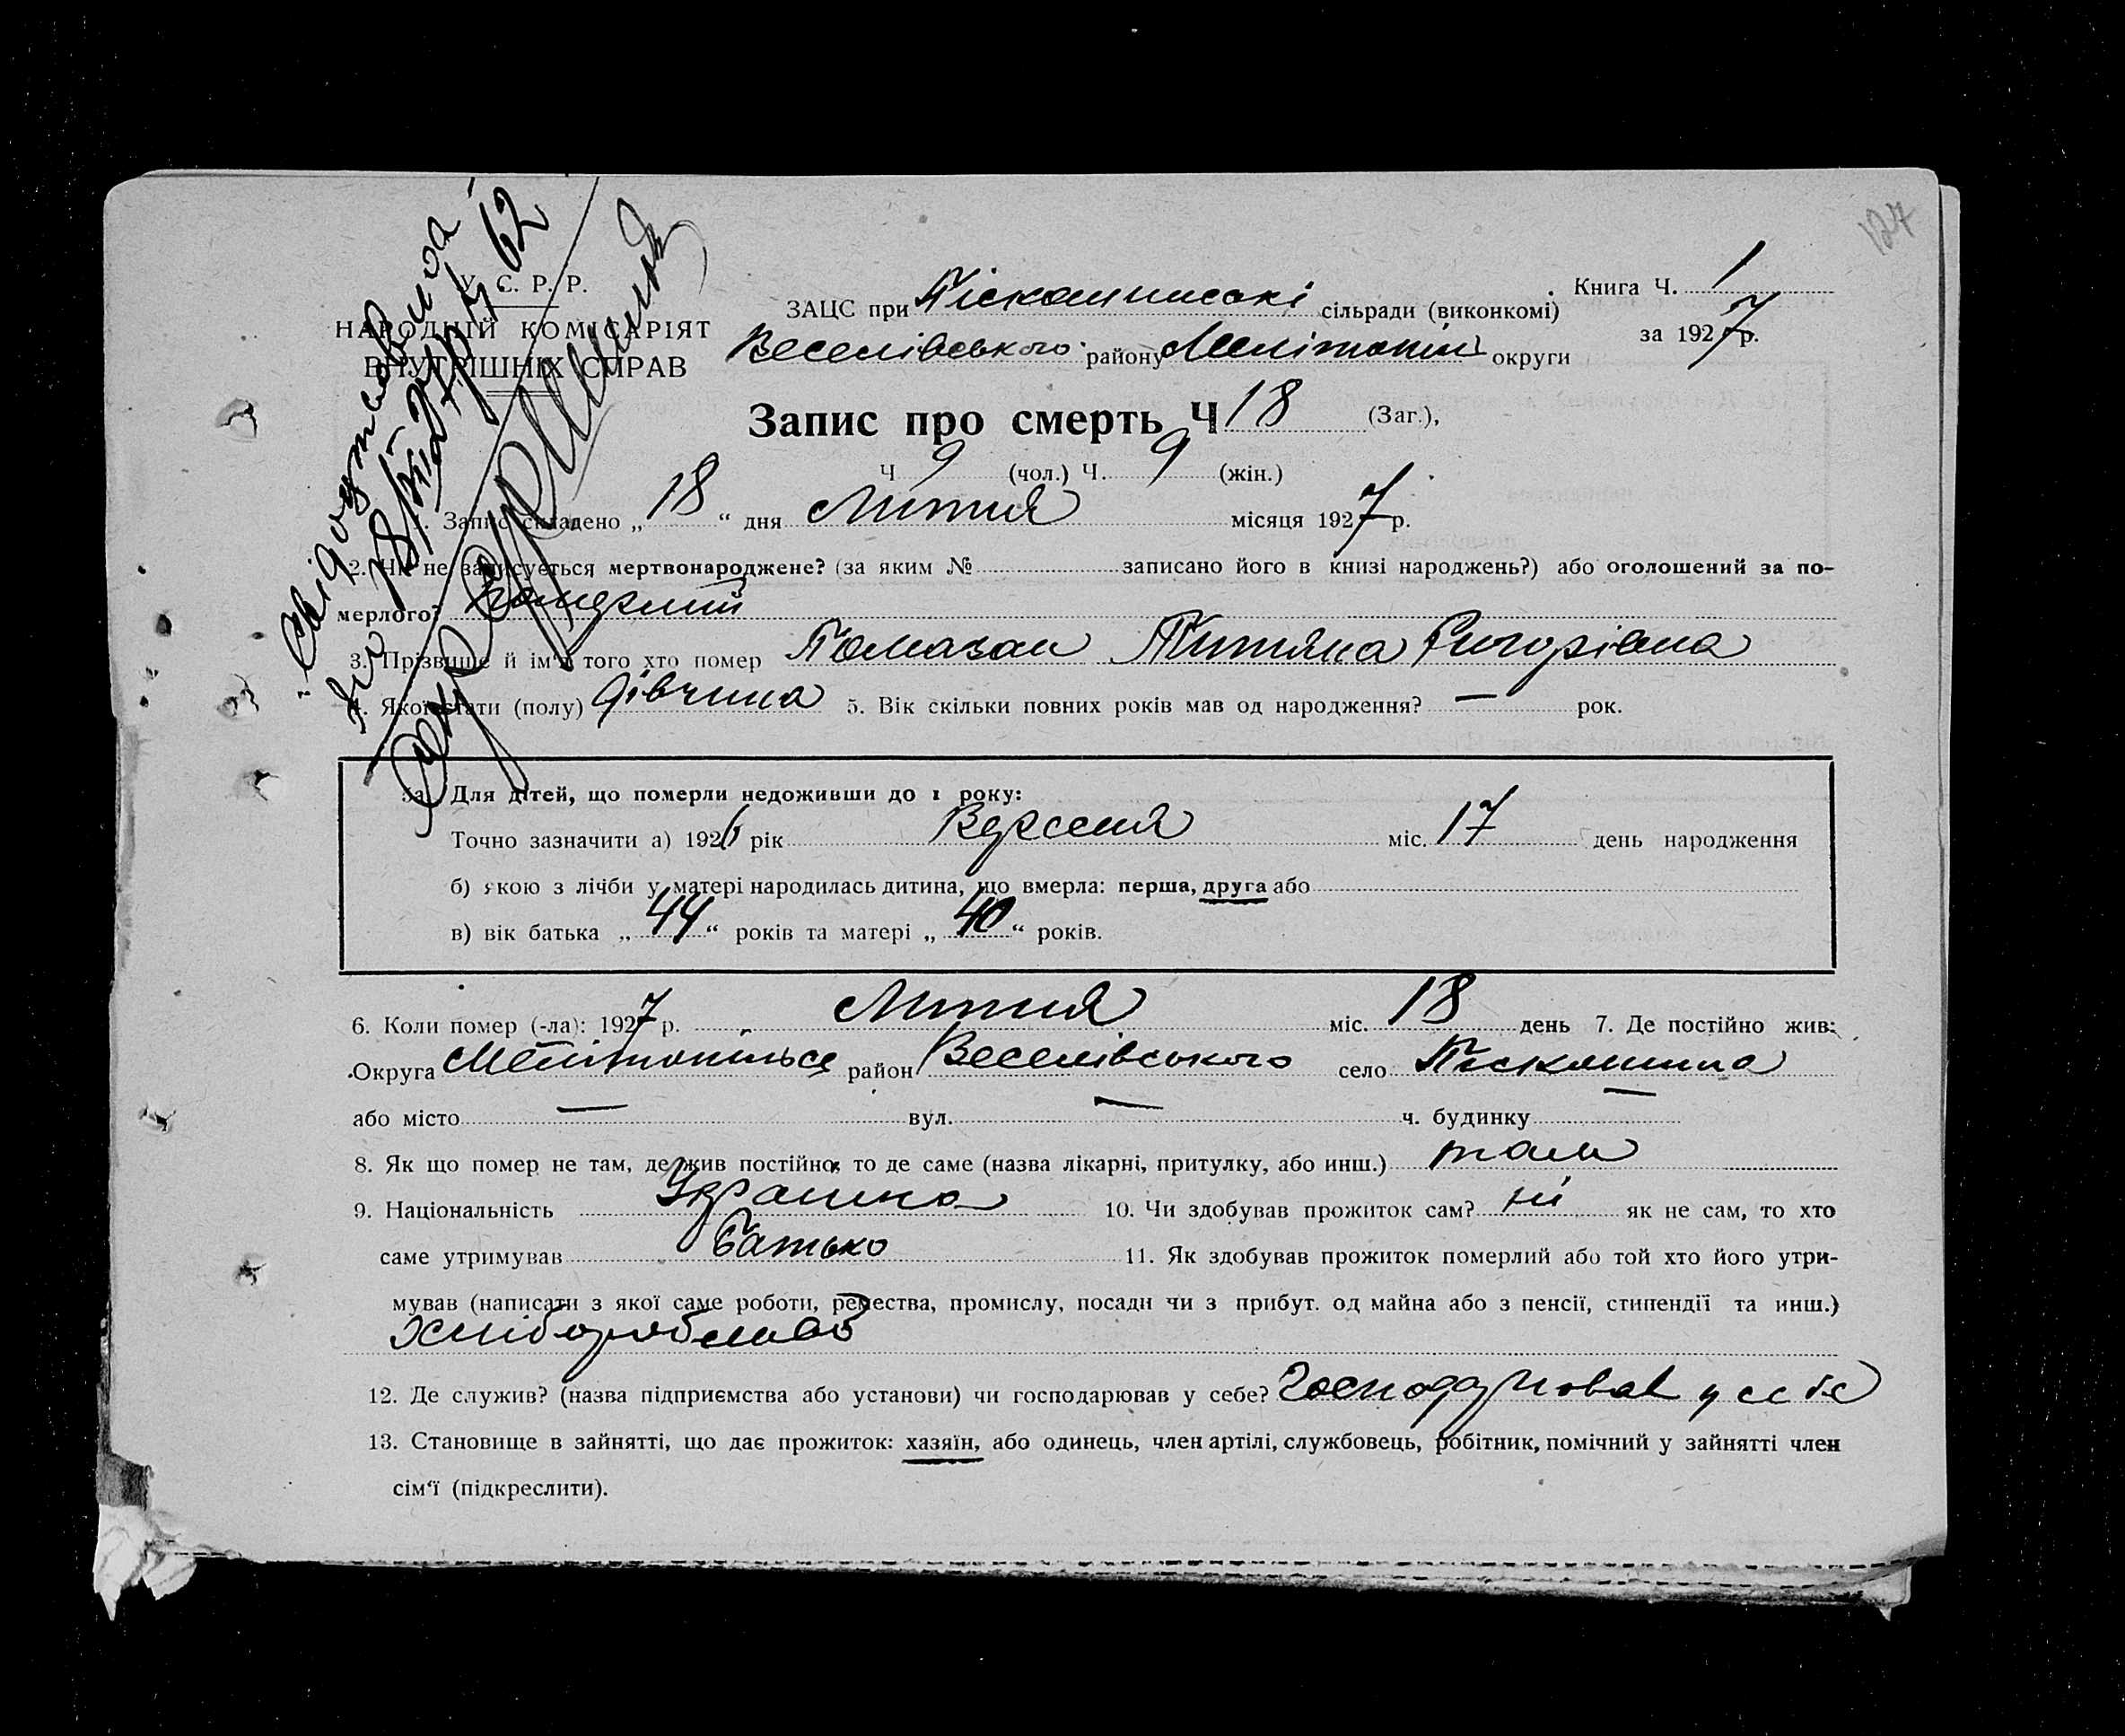 127
У. С. Р. Р.
НАРОДНІЙ КОМІСАРІЯТ
ВНУТРІШНІХ СПРАВ
Книга Ч. 1
за 1927 р.
ЗАЦС при сільради (виконкомі)
Веселівського району Мелітопіль округи
Запис про смерть Ч 18 (Заг.),
Ч 9 (чол.) Ч. 9 (жін.)
1. Запис складено „ 18 “ дня Липня місяця 1927 р.
2. Чи не записується мертвонароджене? (за яким № записано його в книзі народжень?) або оголошений за по-
мерлого? померлий
3. Прізвище й ім'я того хто помер Томазан Титяна Григорівна
4. Якої стати (полу) дівчина 5. Вік скільки повних років мав од народження? — рок.
5а. Для дітей, що померли недоживши до 1 року:
Точно зазначити а) 1926 рік Версеня міс. 17 день народження
б) якою з лічби у матері народилась дитина, що вмерла: перша, друга або
в) вік батька „ 44 “ років та матері „ 40 “ років.
6. Коли помер (-ла): 1927 р. Липня міс. 18 день 7. Де постійно жив:
Округа район Веселівського село Піскошина
або місто — вул. — ч. будинку —
8. Як що помер не там, де жив постійно, то де саме (назва лікарні, притулку, або инш.) там
9. Національність Украинка 10. Чи здобував прожиток сам? ні як не сам, то хто
саме утримував батько 11. Як здобував прожиток померлий або той хто його утри-
мував (написати з якої саме роботи, ремества, промислу, посади чи з прибут. од майна або з пенсії, стипендії та инш.)
хліборобством
12. Де служив? (назва підприємства або установи) чи господарював у себе? Господарював у себе
13. Становище в зайнятті, що дає прожиток: хазяїн, або одинець, член артілі, службовець, робітник, помічний у зайнятті член
сім'ї (підкреслити).